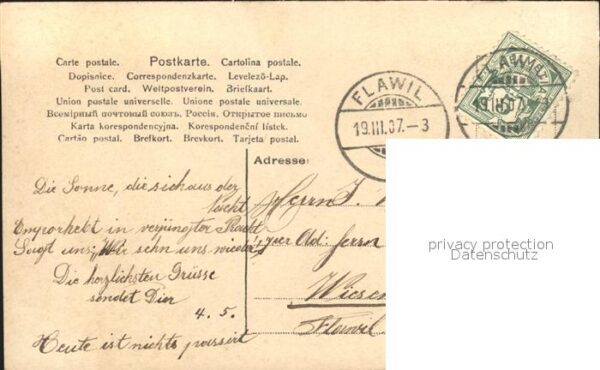 Carte postale. Postkarte. Cartolina postale.
Dopisnice. Correspondenzkarte. Levelező-Lap.
Post card. Weltpostverein. Briefkaart.
Union postale universelle. Unione postale universale.
Всемірный почтовый союзъ. Россія. Открытое письмо
Karta korespondencyjna. Korespondenční lístek.
Cartão postal. Brefkort. Brevkort. Tarjeta postal.
FLAWIL
19.III.07.–3
FLAWIL
19.III.07.
Adresse:
Die Sonne, die sich aus der
Nacht
Emporhebt in verjüngter Pracht
Sagt uns: „Wir sehn uns wieder!"
Die herzlichsten Grüsse
sendet Dier
4. 5.
Heute ist nichts passirt
Herrn J.
Herrn
Wiesen
Flawil
privacy protection
Datenschutz